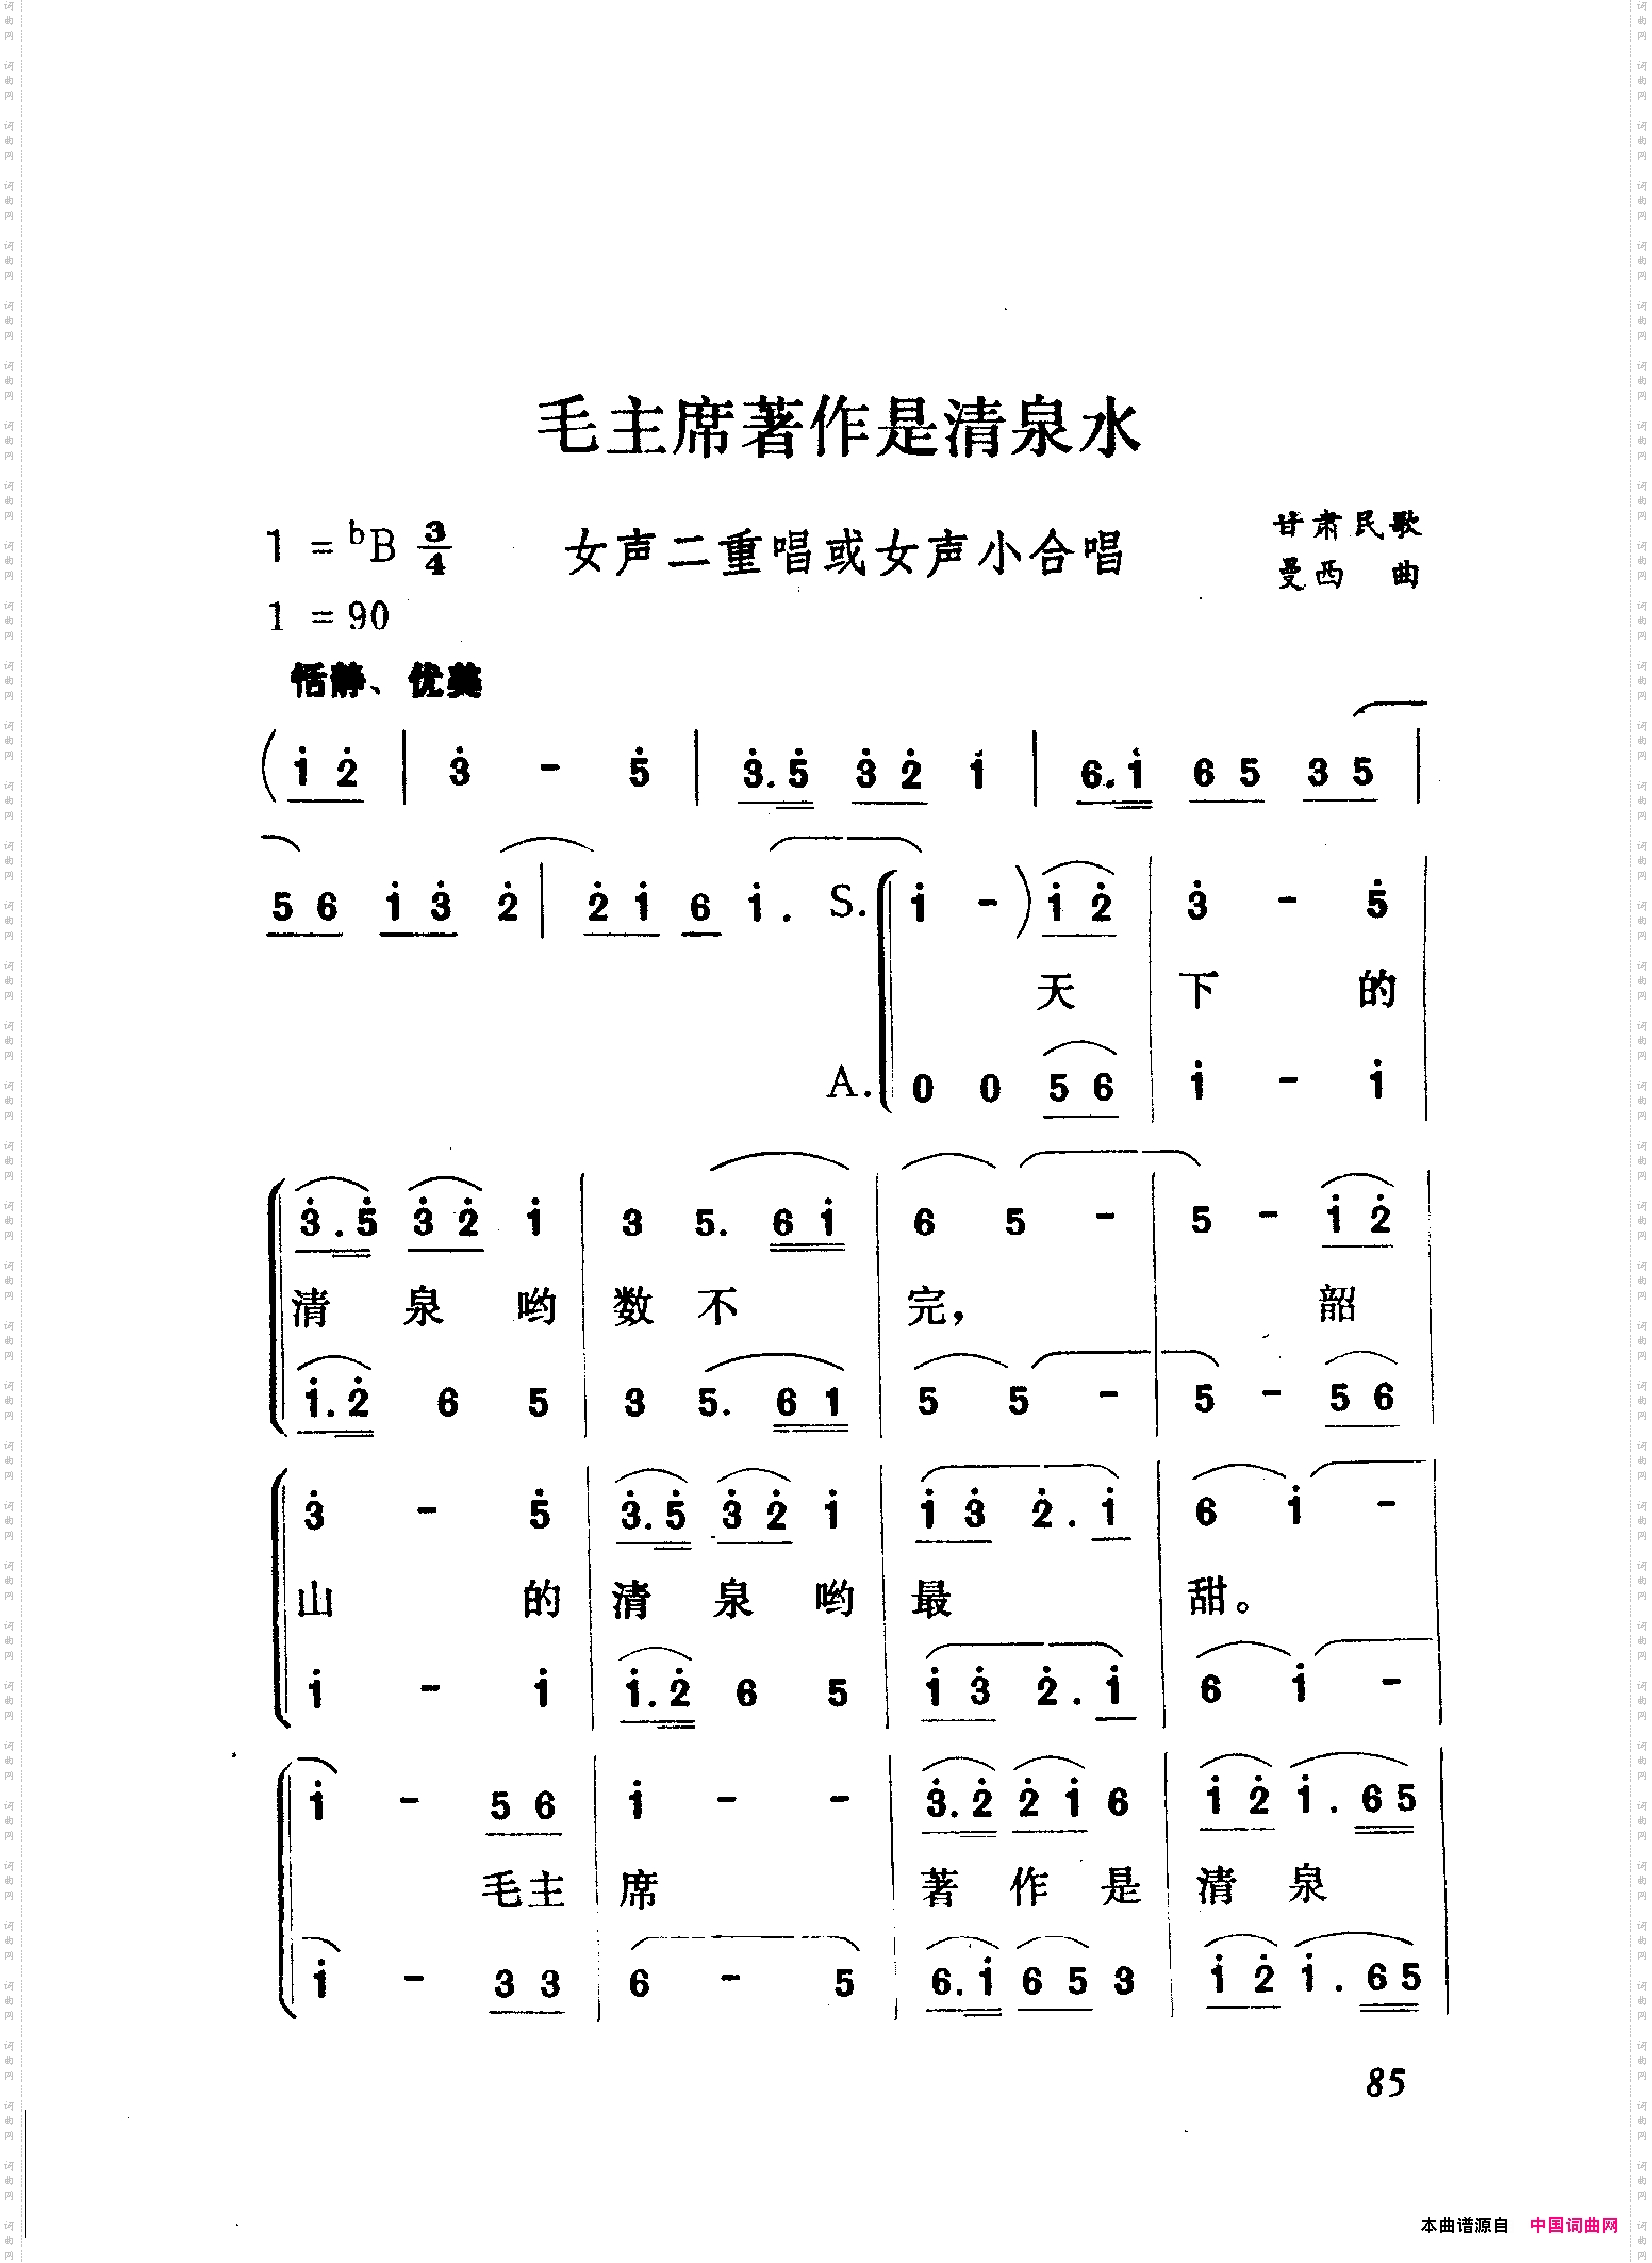 毛主席著作是清泉水
1 = ᵇB 3/4 女声二重唱或女声小合唱 甘肃民歌
曼西 曲
1 = 90
恬静、优美
( i̇ 2̇ | 3̇ - 5̇ | 3̇.5̇ 3̇ 2̇ i̇ | 6.i̇ 6 5 3 5 |
5 6 i̇ 3̇ 2̇ | 2̇ i̇ 6 i̇. S. i̇ - ) i̇ 2̇ | 3̇ - 5̇
天 下 的
A. 0 0 5 6 | i̇ - i̇
3̇.5̇ 3̇ 2̇ i̇ | 3 5. 6 i̇ | 6 5 - | 5 - i̇ 2̇ |
清 泉 哟 数 不 完， 韶
i̇.2̇ 6 5 | 3 5. 6 1 | 5 5 - | 5 - 5 6 |
3̇ - 5̇ | 3̇.5̇ 3̇ 2̇ i̇ | i̇ 3̇ 2̇. i̇ | 6 i̇ - |
山 的 清 泉 哟 最 甜。
i̇ - i̇ | i̇.2̇ 6 5 | i̇ 3̇ 2̇. i̇ | 6 i̇ - |
i̇ - 5 6 | i̇ - - | 3̇.2̇ 2̇ i̇ 6 | i̇ 2̇ i̇. 6 5 |
毛主 席 著 作 是 清 泉
i̇ - 3 3 | 6 - 5 | 6.i̇ 6 5 3 | i̇ 2̇ i̇. 6 5 |
85
本曲谱源自 中国词曲网